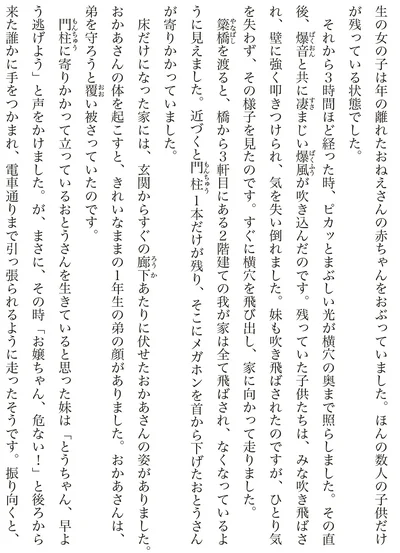 生の女の子は年の離れたおねえさんの赤ちゃんをおぶっていました。ほんの数人の子供だけ
が残っている状態でした。
それから3時間ほど経った時、ピカッとまぶしい光が横穴の奥まで照らしました。その直
後、爆音と共に凄まじい爆風が吹き込んだのです。残っていた子供たちは、みな吹き飛ばさ
れ、壁に強く叩きつけられ、気を失い倒れました。妹も吹き飛ばされたのですが、ひとり気
を失わず、その様子を見たのです。すぐに横穴を飛び出し、家に向かって走りました。
簗橋を渡ると、橋から3軒目にある2階建ての我が家は全て飛ばされ、なくなっているよ
うに見えました。近づくと門柱1本だけが残り、そこにメガホンを首から下げたおとうさん
が寄りかかっていました。
床だけになった家には、玄関からすぐの廊下あたりに伏せたおかあさんの姿がありました。
おかあさんの体を起こすと、きれいなままの1年生の弟の顔がありました。おかあさんは、
弟を守ろうと覆い被さっていたのです。
門柱に寄りかかって立っているおとうさんを生きていると思った妹は「とうちゃん、早よ
う逃げよう」と声をかけました。が、まさに、その時「お嬢ちゃん、危ない！」と後ろから
来た誰かに手をつかまれ、電車通りまで引っ張られるように走ったそうです。振り向くと、